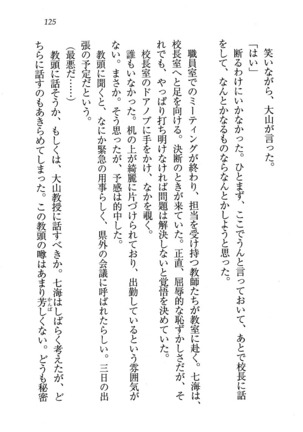 125
笑いながら、大山が言った。
「はい」
断るわけにいかなかった。ひとまず、ここでうんと言っておいて、あとで校長に話
をして、なんとかなるものならなんとかしようと思った。
職員室でのミーティングが終わり、担当を受け持つ教師たちが教室に赴く。七海は、
校長室へと足を向ける。決断のときが来ていた。正直、屈辱的な恥ずかしさだが、そ
れでも、やっぱり打ち明けなければ問題は解決しないと覚悟を決めていた。
校長室のドアノブに手をかけ、なかを覗く。
誰もいなかった。机の上が綺麗に片づけられており、出勤しているという雰囲気が
ない。まさか。そう思ったが、予感は的中した。
教頭に聞くと、なにか緊急の用事らしく、県外の会議に呼ばれたらしい。三日の出
張の予定だという。
（最悪だ……）
教頭に話そうか、もしくは、大山教授に話すべきか。七海はしばらく考えたが、ど
ちらに話すのもあきらめてしまった。この教頭の噂はあまり芳しくない。どうも秘密
かんば